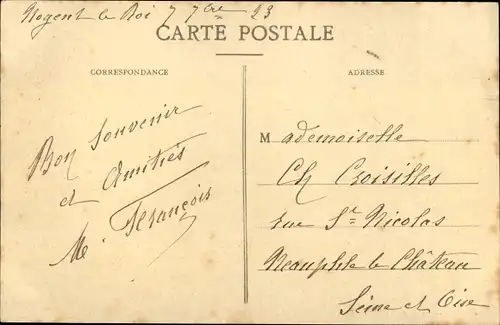 Nogent le Roi 7 7bre 23
CARTE POSTALE
CORRESPONDANCE
ADRESSE
Bon Souvenir
et Amitiés
Me. François
Mademoiselle
Ch Croisilles
rue St Nicolas
Neauphle le Château
Seine et Oise